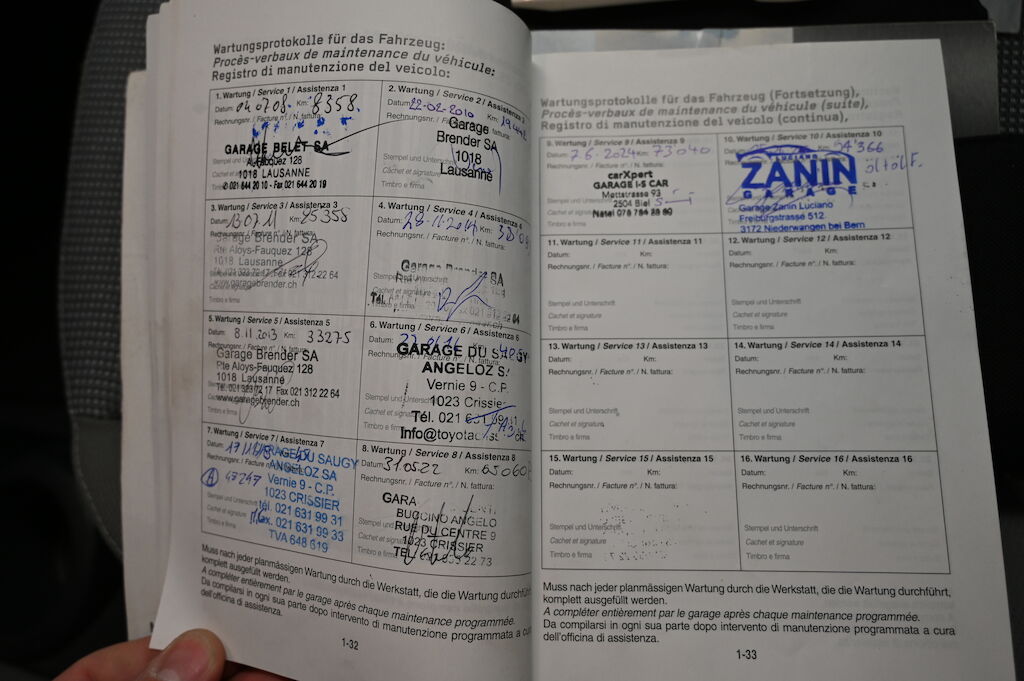 Wartungsprotokolle für das Fahrzeug:
Procès-verbaux de maintenance du véhicule:
Registro di manutenzione del veicolo:
1. Wartung / Service 1 / Assistenza 1
Datum: 04 07 08. Km: 8358.
Rechnungsnr. / Facture n°. / N. fattura:
GARAGE BELET SA
Aloys-Fauquez 128
1018 LAUSANNE
✆ 021 644 20 10 - Fax 021 644 20 19
2. Wartung / Service 2 / Assistenza 2
Datum: 22-02-2010 Km:
Garage
Brender SA
1018
Lausanne
Stempel und Unterschrift
Cachet et signature
Timbro e firma
3. Wartung / Service 3 / Assistenza 3
Datum: Km:
Rechnungsnr. / Facture n°. / N. fattura:
Garage Brender SA
Rte Aloys-Fauquez 128
1018 Lausanne
www.garagebrender.ch
Cachet et signature
Timbro e firma
4. Wartung / Service 4 / Assistenza 4
Datum: Km:
Garage Brender SA
Tél.
5. Wartung / Service 5 / Assistenza 5
Datum: 8.11.2013 Km: 33275
Garage Brender SA
Rte Aloys-Fauquez 128
1018 Lausanne
Tél. 021 323 72 17 Fax 021 312 22 64
www.garagebrender.ch
Timbro e firma
6. Wartung / Service 6 / Assistenza 6
Datum: Km:
GARAGE DU SAUGY
ANGELOZ S
Vernie 9 - C.P.
1023 Crissie
Tél. 021 631
Info@toyota
7. Wartung / Service 7 / Assistenza 7
Datum: Km:
GARAGE DU SAUGY
ANGELOZ SA
Vernie 9 - C.P.
1023 CRISSIER
tél. 021 631 99 31
fax. 021 631 99 33
TVA 648 619
8. Wartung / Service 8 / Assistenza 8
Datum: 31.05.22 Km: 65060
Rechnungsnr. / Facture n°. / N. fattura:
GARA
BUCCINO ANGELO
RUE DU CENTRE 9
1023 CRISSIER
Muss nach jeder planmässigen Wartung durch die Werkstatt, die die Wartung durchführt,
komplett ausgefüllt werden.
A compléter entièrement par le garage après chaque maintenance programmée.
Da compilarsi in ogni sua parte dopo intervento di manutenzione programmata a cura
dell'officina di assistenza.
1-32
Wartungsprotokolle für das Fahrzeug (Fortsetzung),
Procès-verbaux de maintenance du véhicule (suite),
Registro di manutenzione del veicolo (continua),
9. Wartung / Service 9 / Assistenza 9
Datum: 7.6.2024 Km: 73040
Rechnungsnr. / Facture n°. / N. fattura:
carXpert
GARAGE I-S CAR
Mettstrasse 93
2504 Biel
Natel 078 784 28 80
Timbro e firma
10. Wartung / Service 10 / Assistenza 10
LUCIANO
ZANIN
GARAGE
Garage Zanin Luciano
Freiburgstrasse 512
3172 Niederwangen bei Bern
11. Wartung / Service 11 / Assistenza 11
Datum: Km:
Rechnungsnr. / Facture n°. / N. fattura:
Stempel und Unterschrift
Cachet et signature
Timbro e firma
12. Wartung / Service 12 / Assistenza 12
Datum: Km:
Rechnungsnr. / Facture n°. / N. fattura:
Stempel und Unterschrift
Cachet et signature
Timbro e firma
13. Wartung / Service 13 / Assistenza 13
Datum: Km:
Rechnungsnr. / Facture n°. / N. fattura:
Stempel und Unterschrift
Cachet et signature
Timbro e firma
14. Wartung / Service 14 / Assistenza 14
Datum: Km:
Rechnungsnr. / Facture n°. / N. fattura:
Stempel und Unterschrift
Cachet et signature
Timbro e firma
15. Wartung / Service 15 / Assistenza 15
Datum: Km:
Rechnungsnr. / Facture n°. / N. fattura:
Stempel und Unterschrift
Cachet et signature
Timbro e firma
16. Wartung / Service 16 / Assistenza 16
Datum: Km:
Rechnungsnr. / Facture n°. / N. fattura:
Stempel und Unterschrift
Cachet et signature
Timbro e firma
Muss nach jeder planmässigen Wartung durch die Werkstatt, die die Wartung durchführt,
komplett ausgefüllt werden.
A compléter entièrement par le garage après chaque maintenance programmée.
Da compilarsi in ogni sua parte dopo intervento di manutenzione programmata a cura
dell'officina di assistenza.
1-33